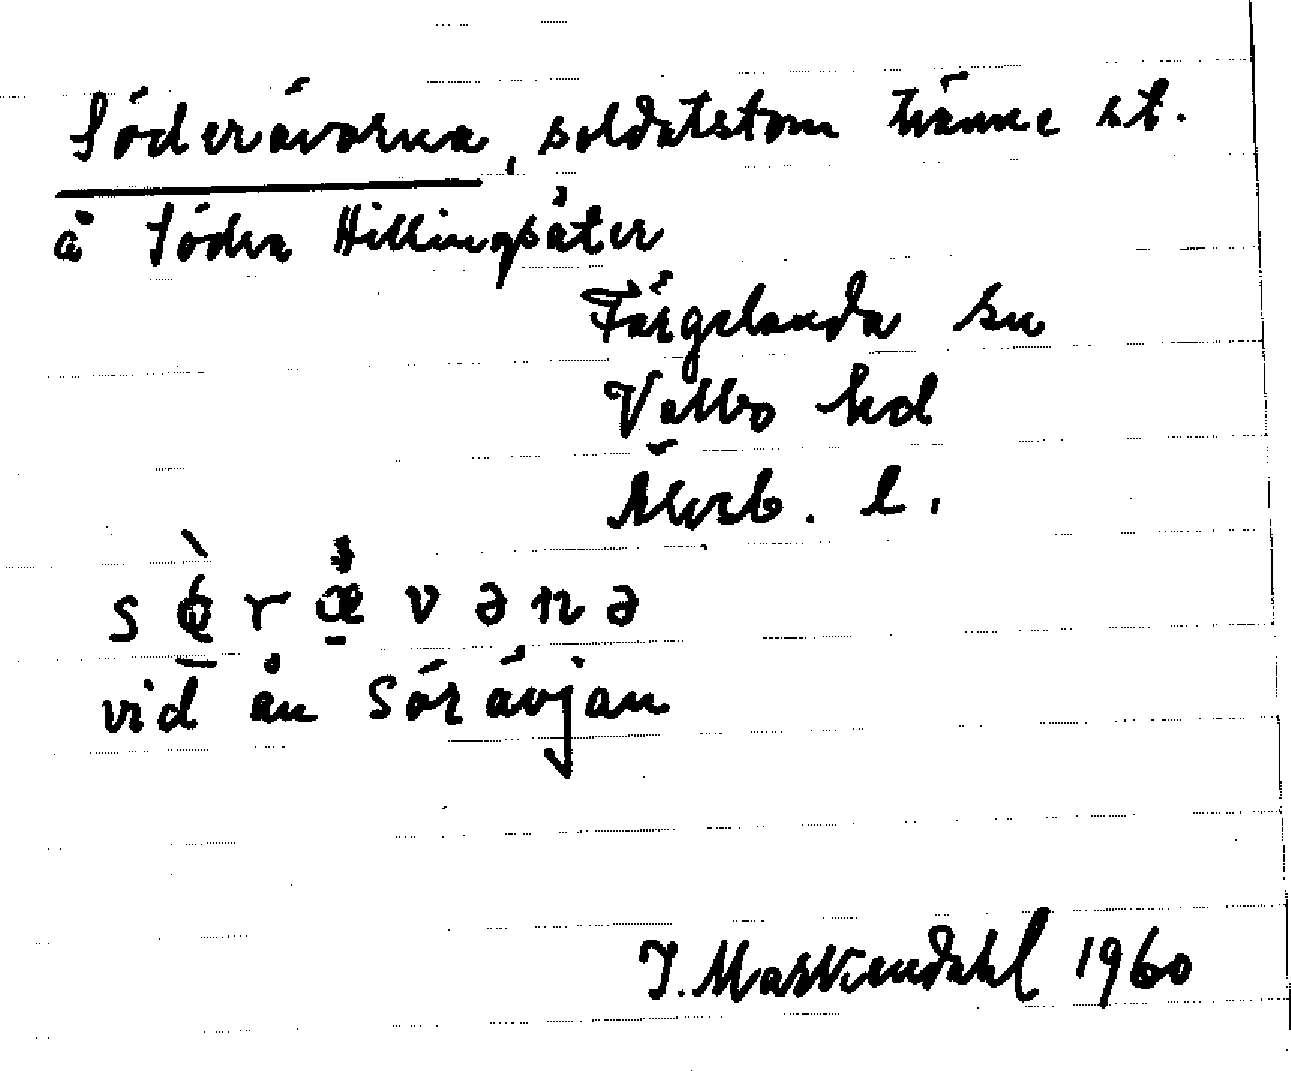 Söderävorna, soldatstom tvänne st.
å Södra Hillingsäter
Färgelanda sn
Valbo hd
Älvsb. l.
vid ån Sörävjan
J. Markendahl 1960